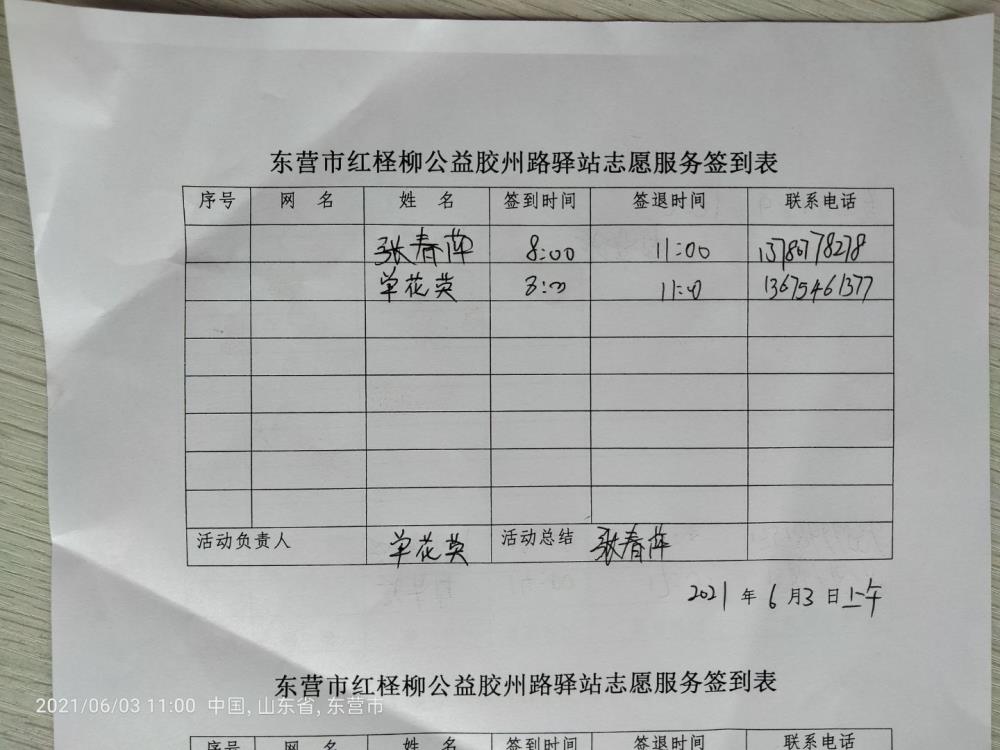 东营市红柽柳公益胶州路驿站志愿服务签到表
序号 网 名 姓 名 签到时间 签退时间 联系电话
张春萍 8:00 11:00 13780778278
单花英 8:00 11:00 13675461377
活动负责人 单花英 活动总结 张春萍
2021 年 6 月 3 日上午
东营市红柽柳公益胶州路驿站志愿服务签到表
2021/06/03 11:00 中国, 山东省, 东营市
序号 网 名 姓 名 签到时间 签退时间 联系电话